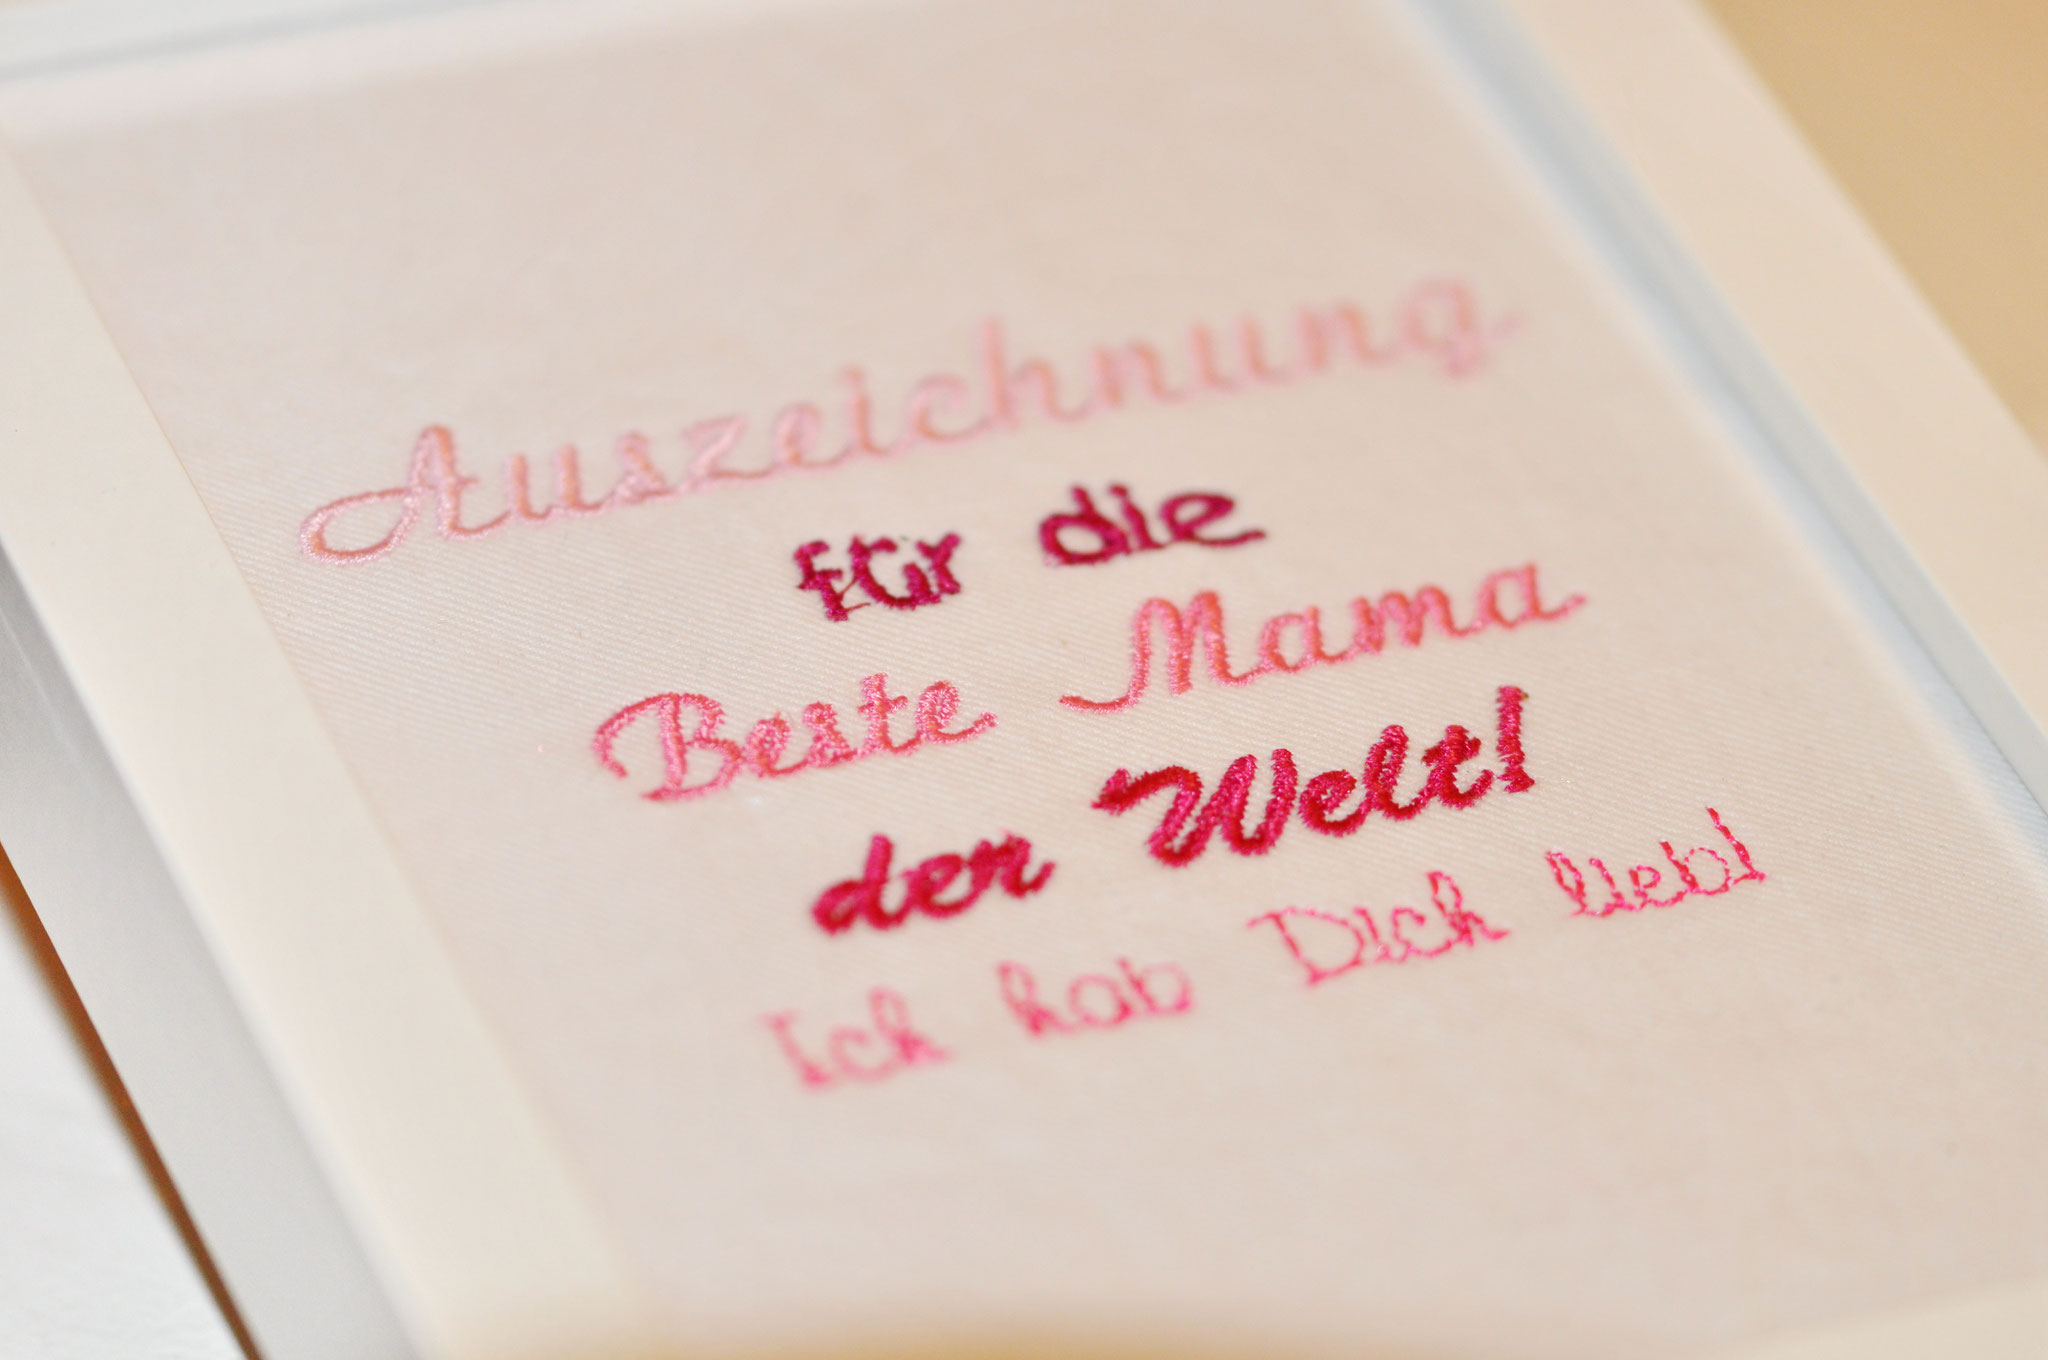 Auszeichnung
für die
Beste Mama
der Welt!
Ich hab Dich lieb!